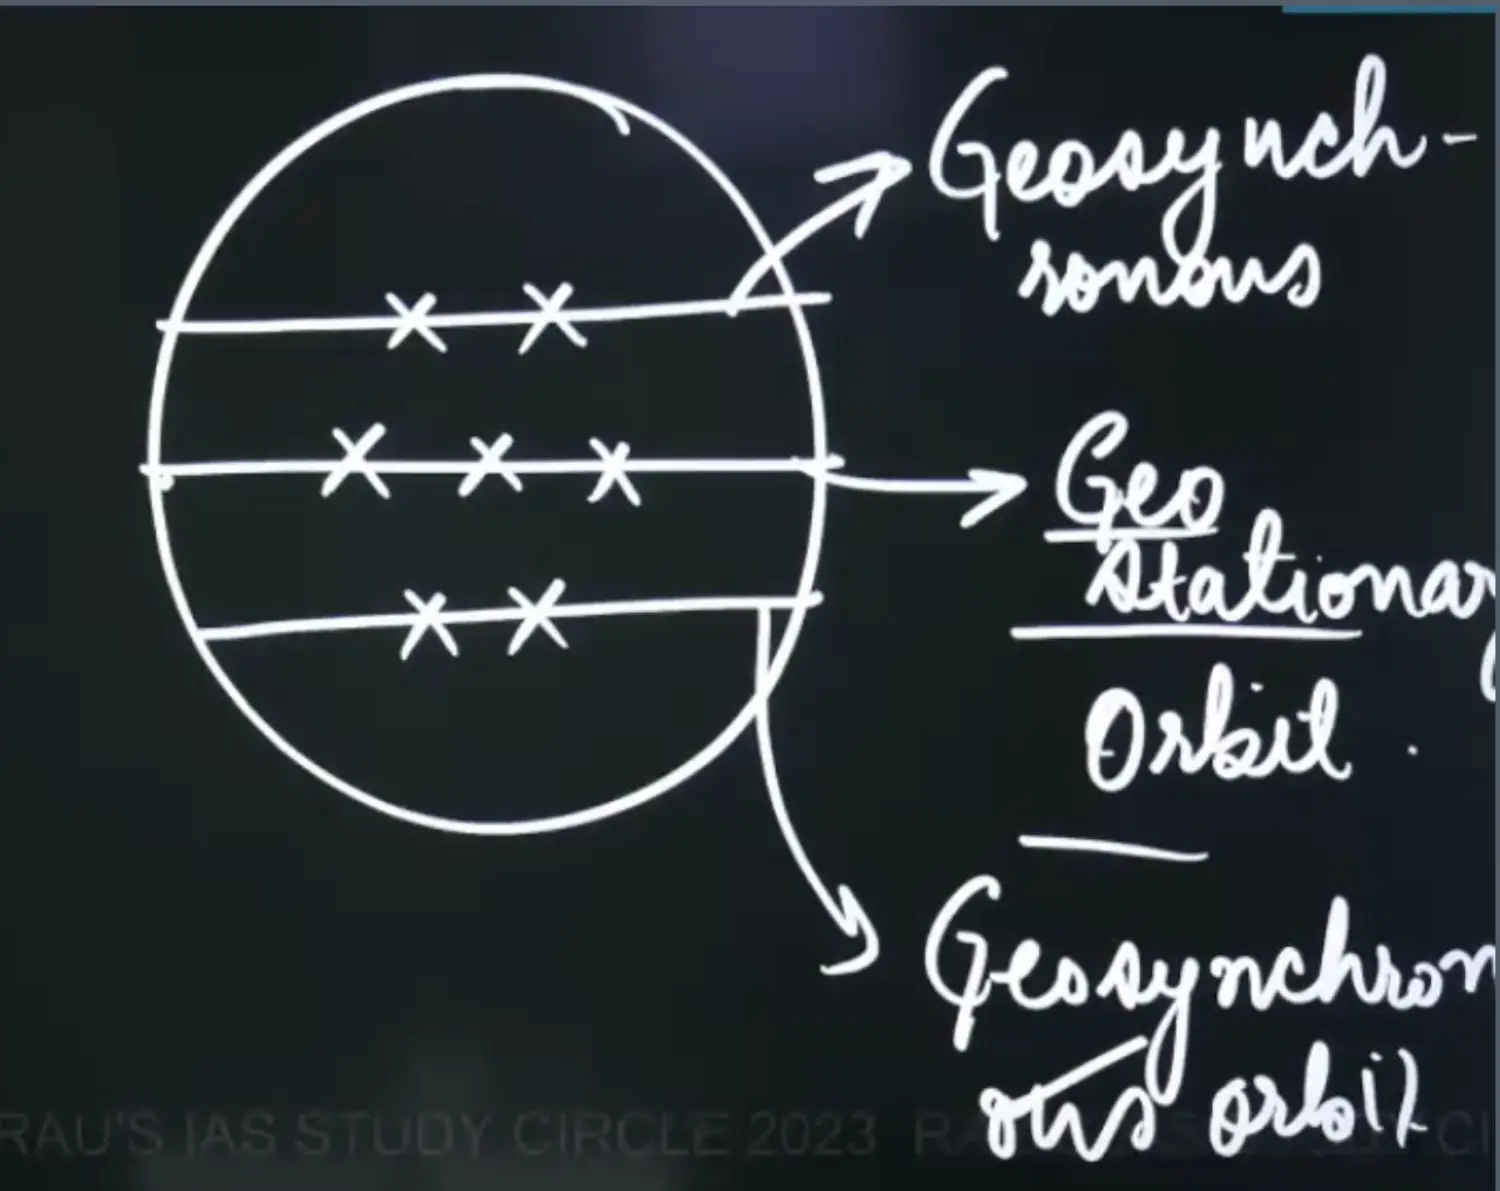 Geosynch-
ronous
Geo
Stationary
Orbit.
Geosynchron
ous orbit
RAU'S IAS STUDY CIRCLE 2023